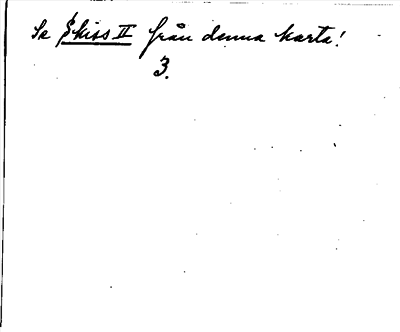 Se Skiss II från denna karta!
3.